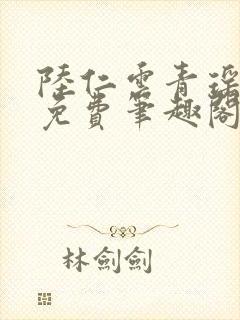 陸仁雲青瑤
免費筆趣閣
林劍劍